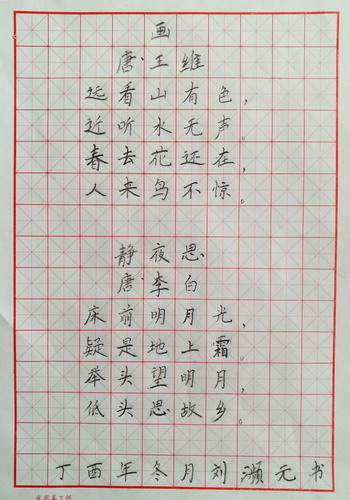 画
唐·王维
远看山有色，
近听水无声。
春去花还在，
人来鸟不惊。
静夜思
唐·李白
床前明月光，
疑是地上霜。
举头望明月，
低头思故乡。
丁酉年冬月刘濒元书